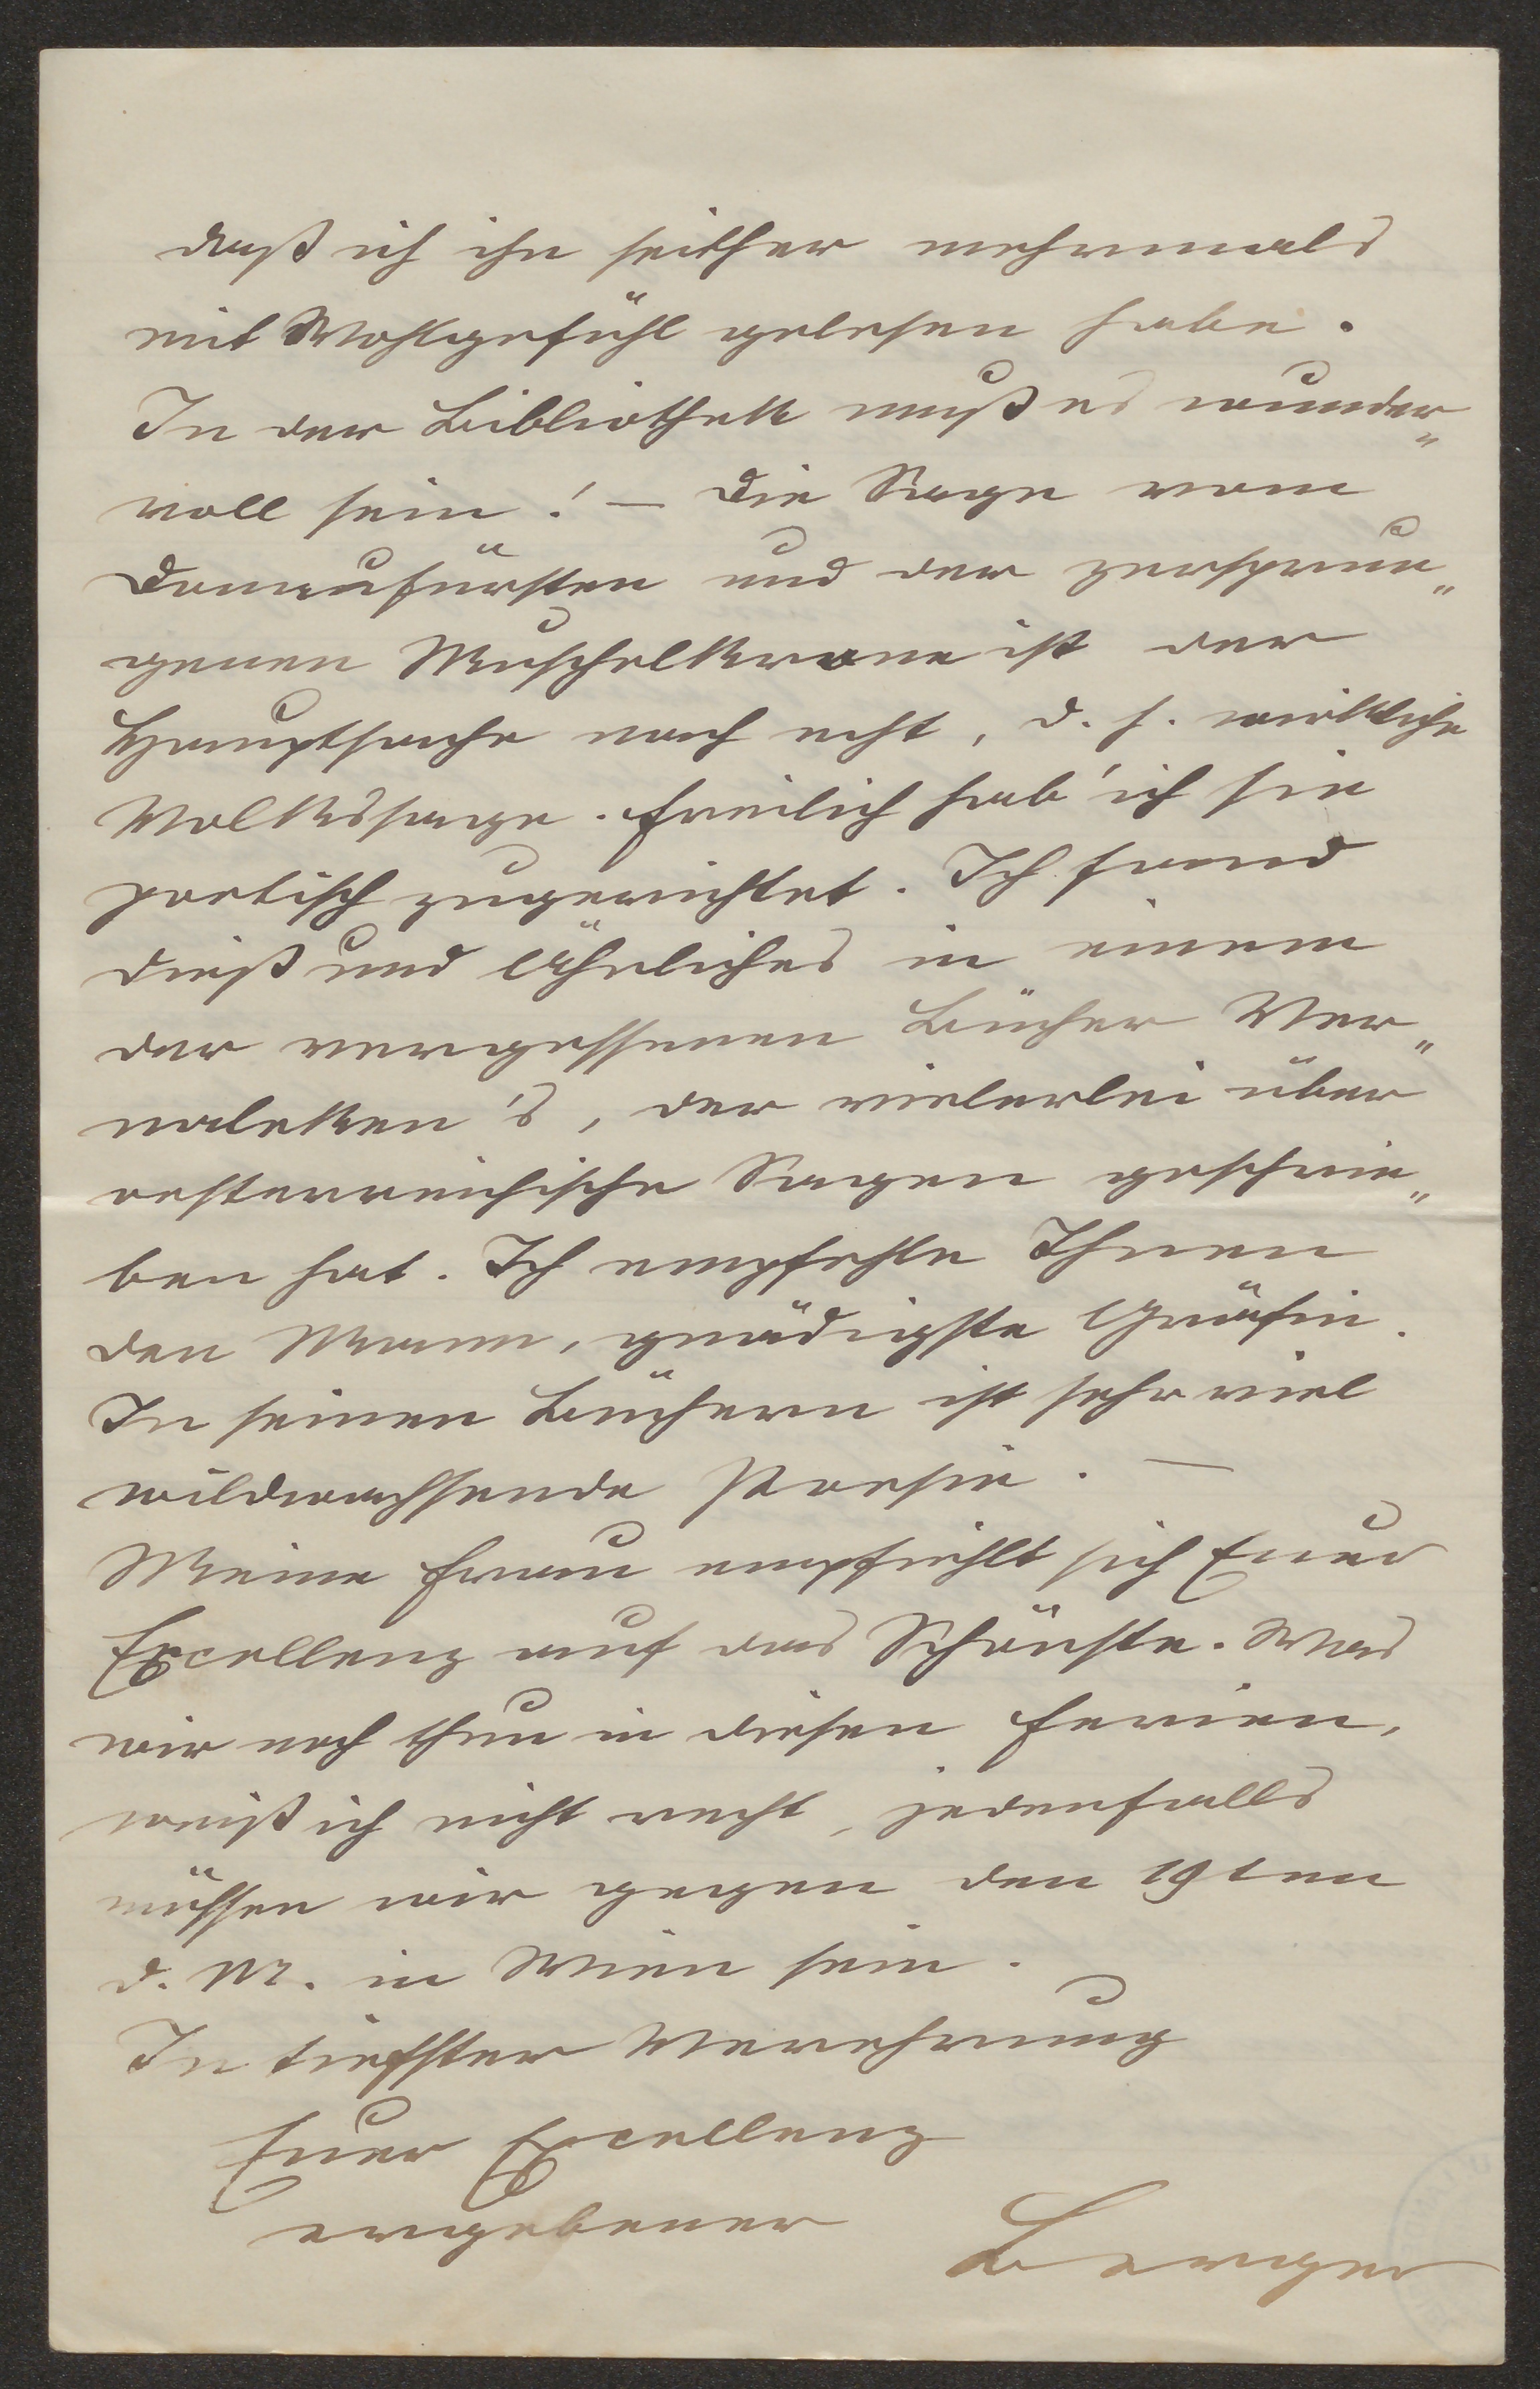 daß ich ihn seither mehrmals
mit Wohlgefühl gelesen habe.
In der Bibliothek muß es wunder„
voll sein! – Die Sage vom
Donaufürsten und der zersprun„
genen Muschelkrone ist der
Hauptsache nach echt, d. h. wirkliche
Volkssage. Freilich hab' ich sie
poetisch zugerichtet. Ich fand
dieß und Ähnliches in einem
der vergessenen Bücher Ver„
naleken's, der vielerlei über
oesterreichische Sagen geschrie„
ben hat. Ich empfehle Ihnen
den Mann, gnädigste Gräfin.
In seinen Büchern ist sehr viel
wildwachsende Poesie. –
Meine Frau empfiehlt sich Euer
Excellenz auf das Schönste. Was
wir noch thun in diesen Ferien,
weiß ich nicht recht, jedenfalls
müssen wir gegen den 19ten
d. M. in Wien sein.
In tiefster Verehrung
Euer Excellenz
ergebener
Berger